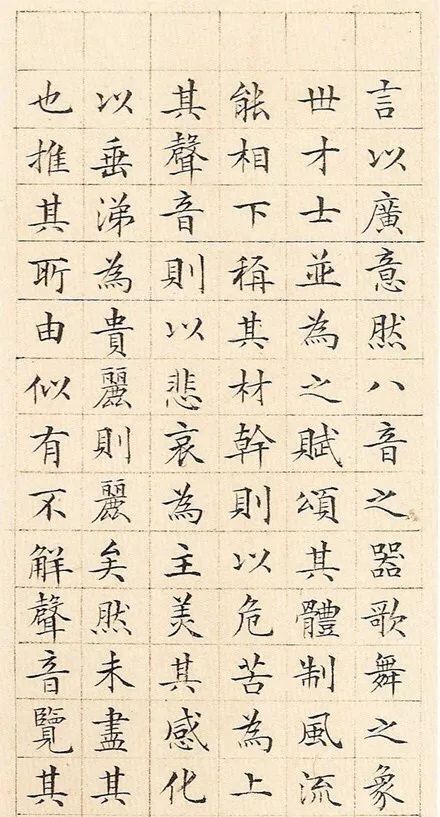 言以廣意然八音之器歌舞之象
世才士並為之賦頌其體制風流
能相下稱其材幹則以危苦為上
其聲音則以悲哀為主美其感化
以垂涕為貴麗則麗矣然未盡其
也推其所由似有不解聲音覽其